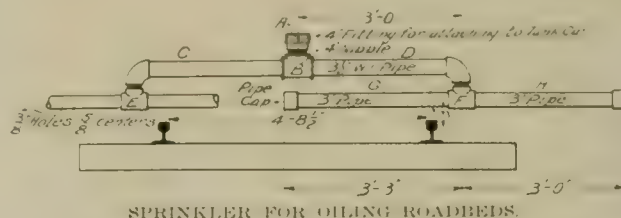 3'-0
A
4" Fitting for attaching to Tank Car
4" Nipple
C
B
D
3½" W. Pipe
E
Pipe
Cap
G
3" Pipe
F
H
3" Pipe
3/8" Holes 5/8 centers
4'-8½"
3'-3"
3'-0"
SPRINKLER FOR OILING ROADBEDS.